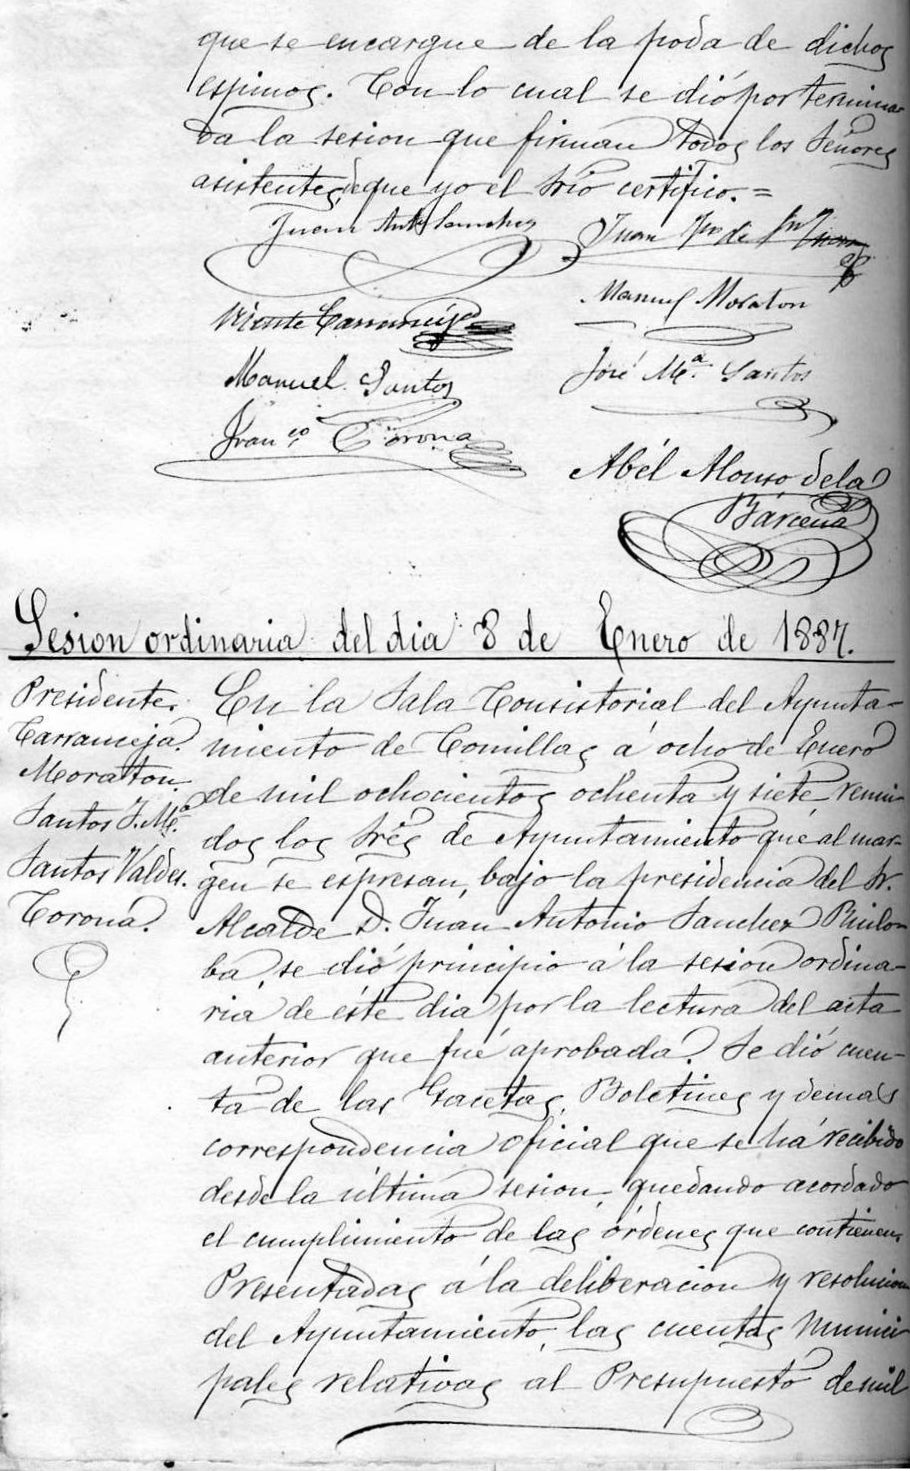 que se encargue de la poda de dichos
espinos. Con lo cual se dió por termina-
da la sesion que firman todos los Señores
asistentes, de que yo el Srio certifico. =
Juan Ant.º Sanchez
Juan
Vicente Carranceja
Manuel Moraton
Manuel Santos
José M.ª Santos
Fran.co Corona
Abél Alonso de la
Bárcena
Sesion ordinaria del dia 8 de Enero de 1887.
Presidente.
Carranceja.
Moraton.
Santos J. M.ª
Santos Valdes.
Corona.
En la Sala Consistorial del Ayunta-
miento de Comillas á ocho de Enero
de mil ochocientos ochenta y siete reuni-
dos los Sres de Ayuntamiento que al mar-
gen se espresan, bajo la presidencia del Sr.
Alcalde D. Juan Antonio Sanchez Ruilo-
ba, se dió principio á la sesion ordina-
ria de éste dia por la lectura del acta
anterior que fué aprobada. Se dió cuen-
ta de las Gacetas, Boletines y demás
correspondencia oficial que se há recibido
desde la última sesion, quedando acordado
el cumplimiento de las órdenes que contienen.
Presentadas á la deliberacion y resolucion
del Ayuntamiento, las cuentas munici-
pales relativas al Presupuesto de mil